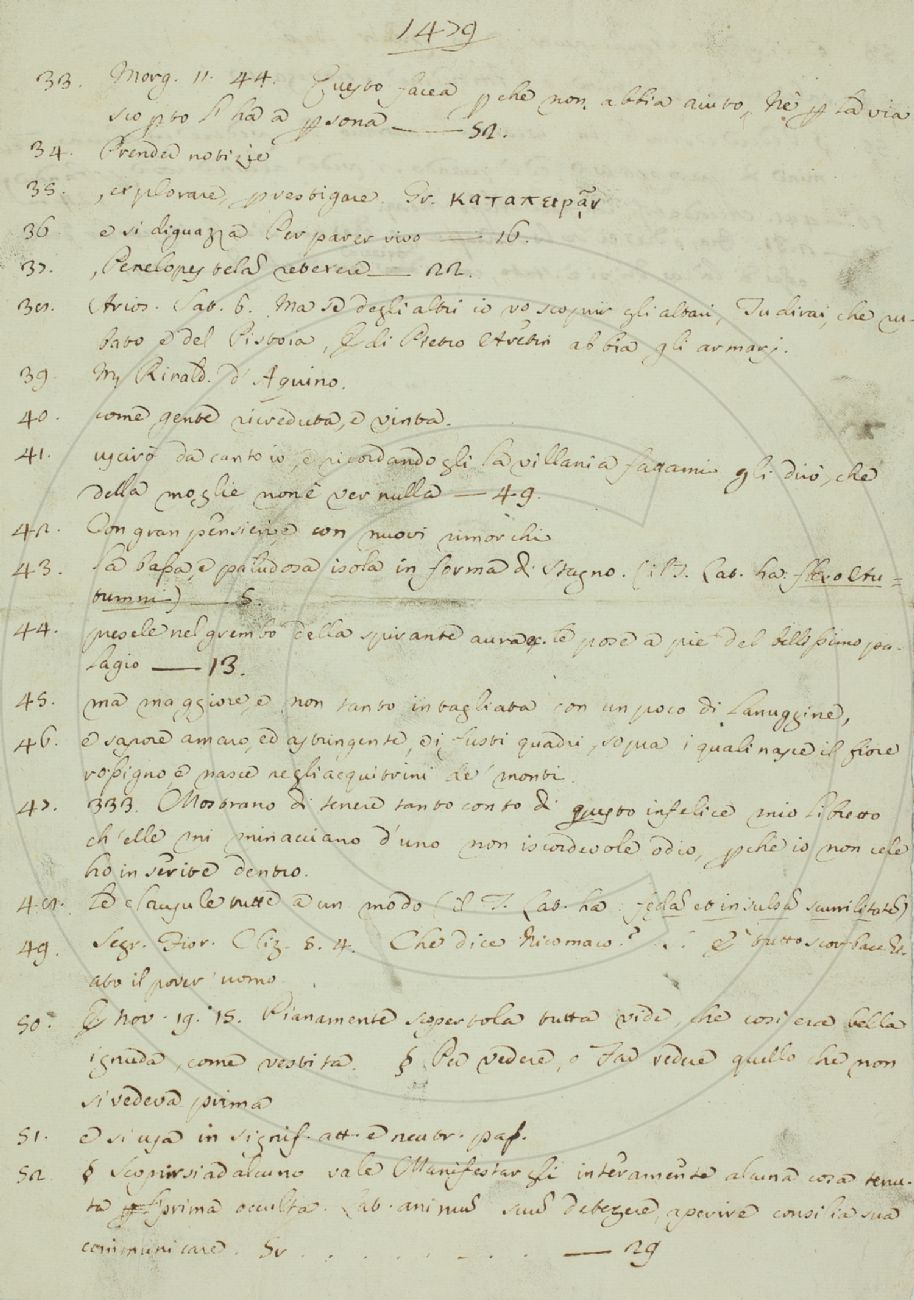 1479
33. Morg. 11. 44. Questo facea pche non abbia aiuto, Nè p la via
scopto l'ha a psona —— 52.
34. Prender notizie
35. , explorare, pvestigare. Gr. καταπειρᾶν
36. e si diguazza Per parer vivo —— 16.
37. , Penelopes telã retexere —— 22.
38. Arios. Sat. 6. Ma se degli altri io vo scoprir gli altari, Tu dirai, che ru-
bato e del Pistoia, E di Pietro Aretin abbia gli armarj.
39. M. Rinald. d'Aquino.
40. come gente ricreduta, e vinta.
41. uscirò da canto io, e ricordandogli la villania fattami gli dirò, che
della moglie non è ver nulla — 49.
42. Con gran pensieri, e con nuovi rimorchi
43. la bassa, e paludosa isola in forma di stagno. (il T. Lat. ha:
—— 5.
44. presele nel grembo della spirante aura le pose a piè del bellissimo pa-
lagio —— 13.
45. ma maggiore, e non tanto intagliata con un poco di Lanuggine,
46. e sapore amaro, ed astringente, e i fusti quadri, sopra i quali nasce il fiore
rossigno, e nasce negli acquitrini de' monti.
47. 333. Mostrano di tenere tanto conto di questo infelice mio libretto
ch'elle mi minacciano d'uno non iscordevole odio, pche io non cele
ho inserite dentro.
48. le clausule tutte a un modo (il T. Lat. ha: fedã et insulsã scurrilitatẽ)
49. Segr. Fior. Cliz. 5. 4. Che dice Nicomaco? S. E' tutto
ato il pover' uomo
50. E nov. 19. 15. Pianamente scopertola tutta vide, che così era bella
ignuda, come vestita. § Per vedere, o Far vedere quello che non
si vedeva prima
51. e si usa in signif. att. e neutr. pass.
52. § Scoprirsi ad alcuno vale Manifestargli interamente alcuna cosa tenu-
ta prima occulta. Lat. animũ suũ detegere, aperire consilia sua
communicare. Gr . . . . . . . . —— 29